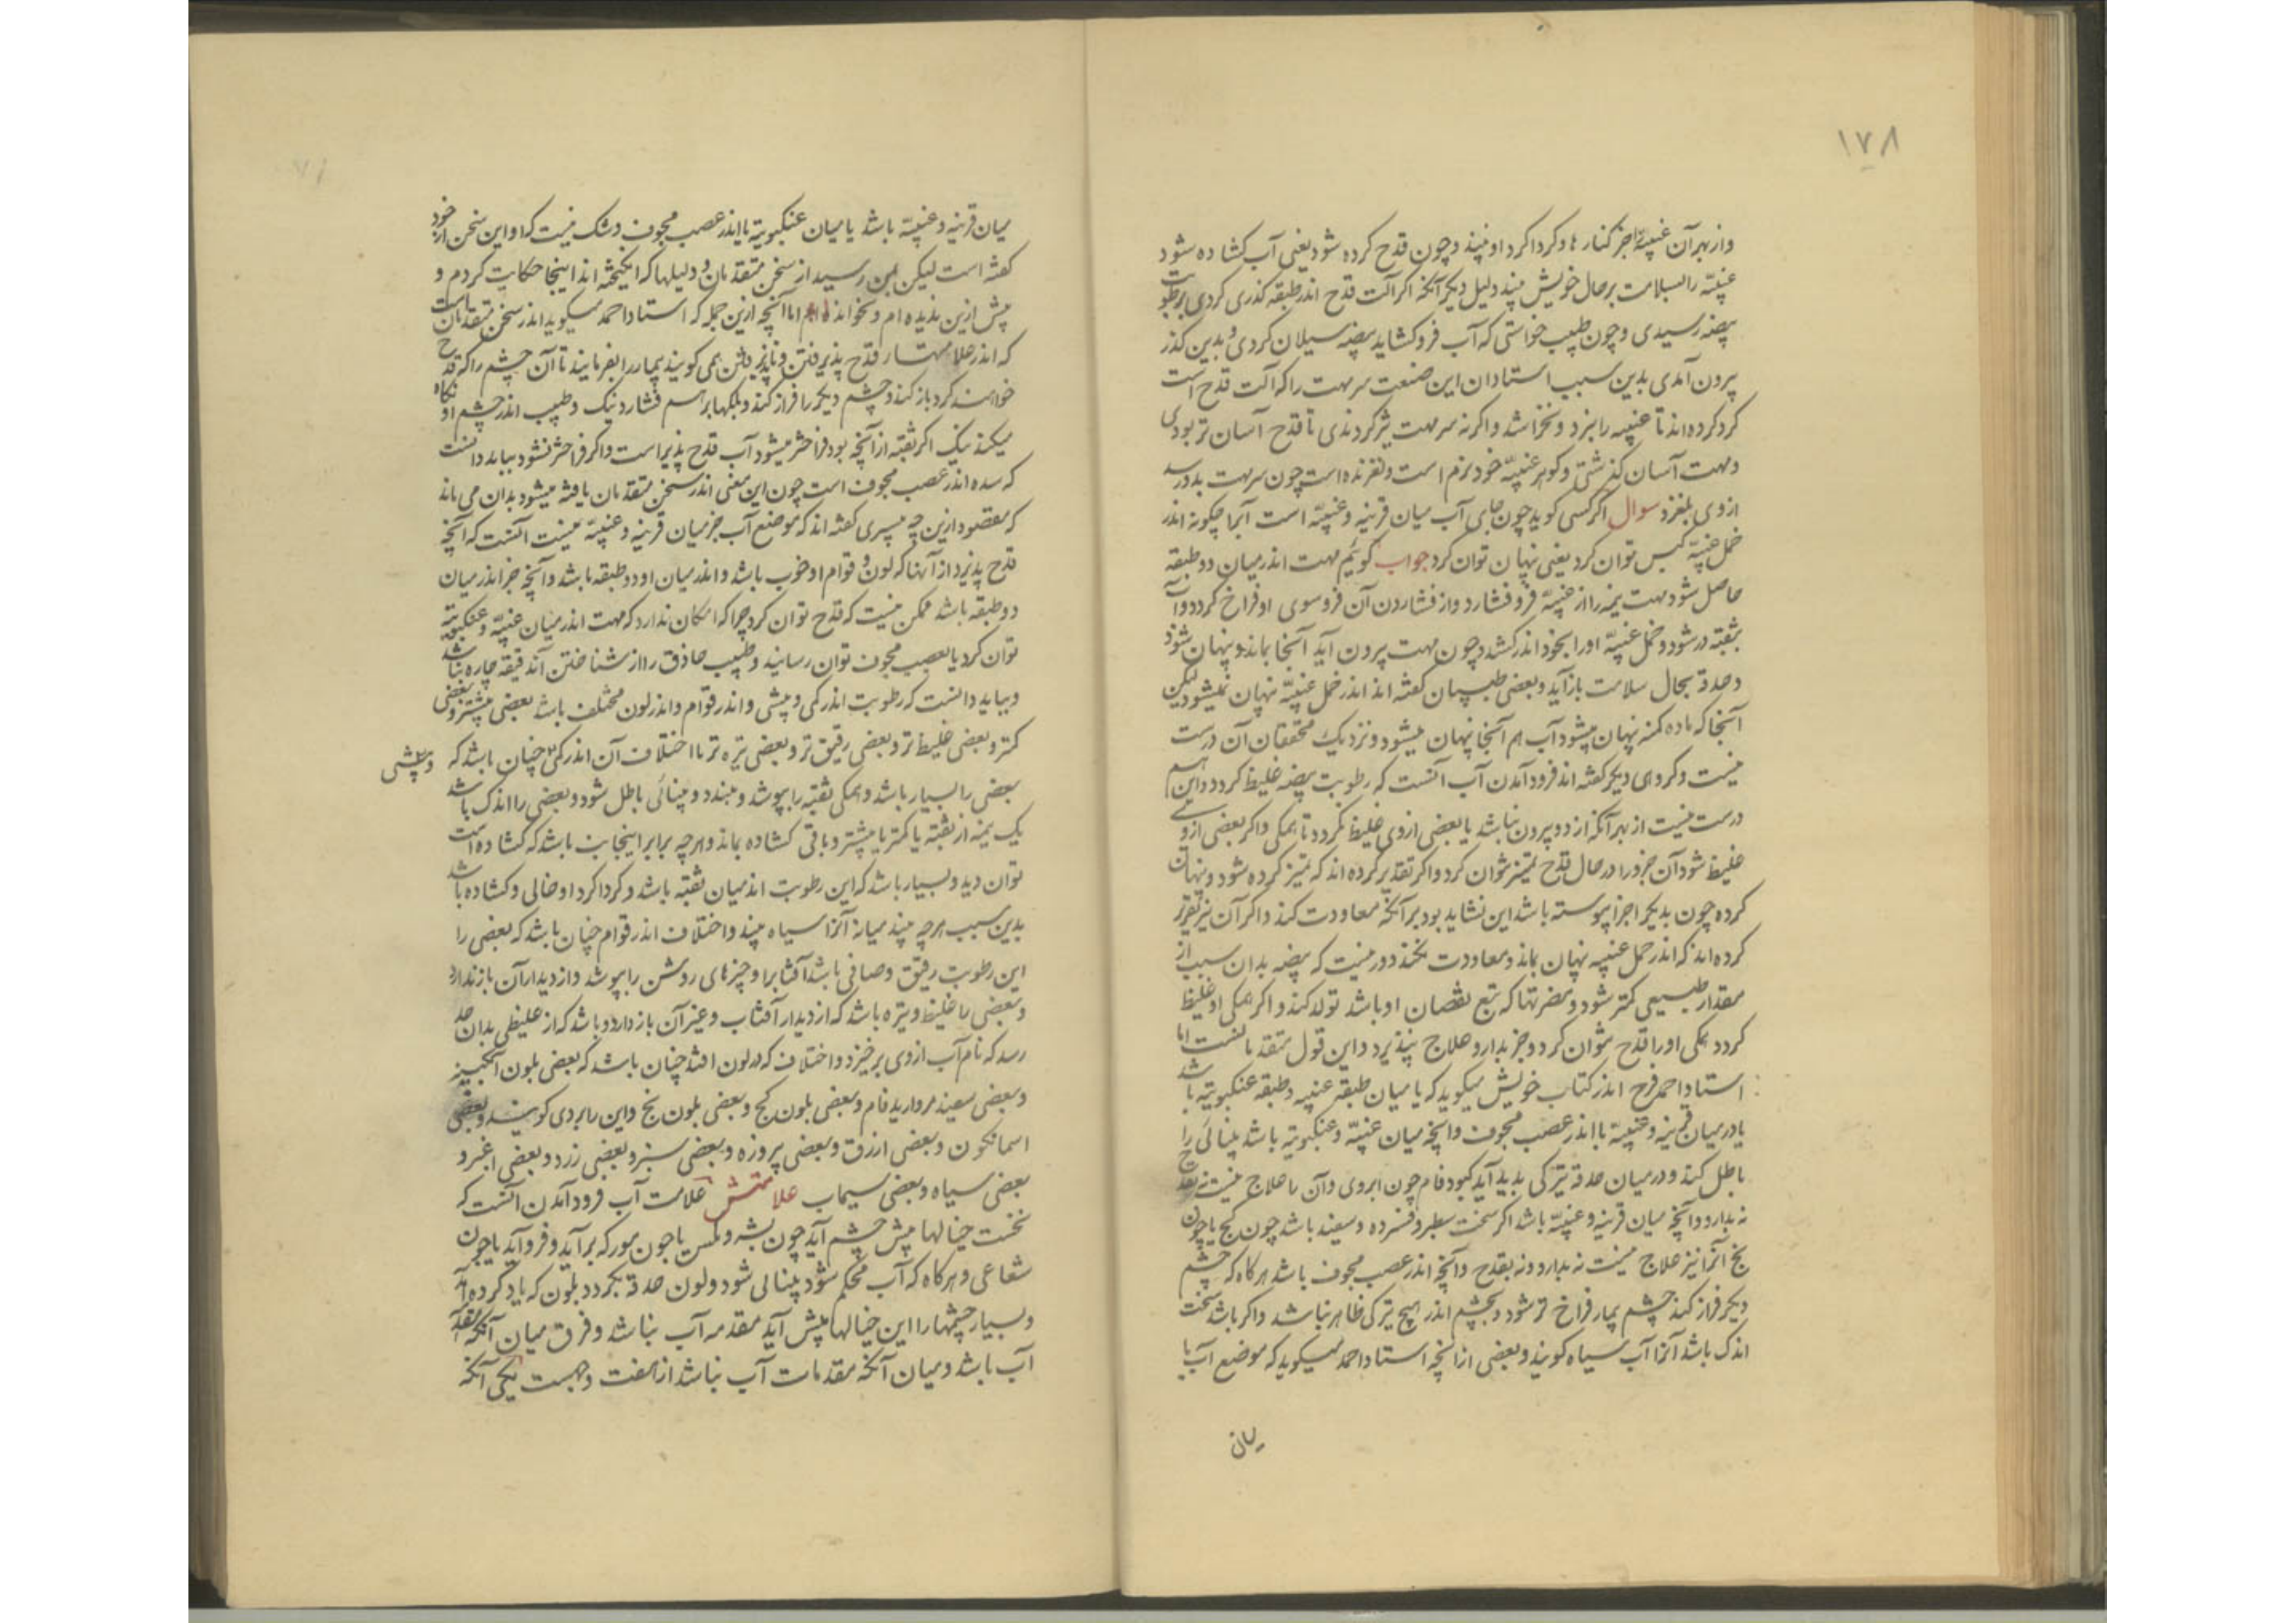 ۱۷۸
وازبهر آن عنبیّه اجز کنارها و کرداکرد او نبیند و چون قدح کرده شود یعنی آب کشاده شود
عنبیّه را بسلامت برحال خویش بیند دلیل دیکر آنکه اکر آلت قدح اندر طبقه کذری کردی برطوبت
بیضه رسیدی و چون طبیب خواستی که آب فرو کشاید بیضه سیلان کردی و بدین کذر
بیرون آمدی بدین سبب استادان این صنعت سر مهت را که آلت قدح است
کرد کرده اند تا عنبیه را نبرد و نخراشد و اکرنه سر مهت تیز کردندی تا قدح آسان تر بودی
و مهت آسان کذشتی و کوهر عنبیّه خود نرم است و لغزنده است چون سر مهت بدو رسد
ازوی بلغزد سوال اکر کسی کوید چون جای آب میان قرنیه و عنبیّه است آبرا چکونه اندر
خمل عنبیّه کبس توان کرد یعنی نهان توان کرد جواب کوئیم مهت اندر میان دو طبقه
حاصل شود مهت نیزه را از عنبیّه فرو فشارد و از فشاردن آن فروسوی او فراخ کردد و آب
بثقبه در شود و خمل عنبیّه او را بخود اندر کشد و چون مهت بیرون آید آنجا بماند و پنهان شود
و حدقه بحال سلامت باز آید و بعضی طبیبان کفته اند اندر خمل عنبیّه نهان نمیشود لیکن
آنجا که ماده کمنه نهان میشود آب هم آنجا نهان میشود و نزدیک محققان آن درست
نیست و کروهی دیکر کفته اند فرود آمدن آب آنست که رطوبت بیضه غلیظ کردد و این هم
درست نیست از بهر آنکه از دو بیرون نباشد یا بعضی ازوی غلیظ کردد تا همکی و اکر بعضی ازوی
غلیظ شود آن جزو را در حال قدح تمیز نتوان کرد و اکر تقدیر کرده اند که تمیز کرده شود و نهان
کرده چون بدیکر اجزا پیوسته باشد این نشاید بود بر آنکه معاودت کند و اکر آن نیز تقریر
کرده اند که اندر خمل عنبیه نهان بماند و معاودت نکند دور نیست که بیضه بدان سبب از
مقدار طبیعی کمتر شود و مضرتها که تبع نقصان او باشد تولد کند و اکر همکی او غلیظ
کردد همکی او را قدح نتوان کرد و جز بدارو علاج نپذیرد و این قول متقدمانست اما
استاد احمد فرح اندر کتاب خویش میکوید که یا میان طبقه عنبیه و طبقه عنکبوتیه باشد
یا در میان قرنیه و عنبیه یا اندر عصب مجوف و آنچه میان عنبیّه و عنکبوتیه باشد بینائی را
باطل کند و در میان حدقه تیرکی بدید آید کبود فام چون ابروی و آن را علاج نیست نه بقدح
نه بدارو و آنچه میان قرنیه و عنبیّه باشد اکر سخت سطبر و فسرده و سفید باشد چون کچ یا چون
یخ آنرا نیز علاج نیست نه بدارو و نه بقدح و آنچه اندر عصب مجوف باشد هرکاه که چشم
دیکر فراز کند چشم بیمار فراخ تر شود و بچشم اندر هیچ تیرکی ظاهر نباشد و اکر باشد سخت
اندک باشد آنرا آب سیاه کویند و بعضی از آنچه استاد احمد میکوید که موضع آب یا
میان
میان قرنیه و عنبیّه باشد یا میان عنکبوتیه یا اندر عصب مجوف و شک نیست که او این سخن از خود
کفته است لیکن بمن رسید از سخن متقدمان و دلیلها که انکیخته اند اینجا حکایت کردم و
پیش ازین ندیده ام و نخوانده ام اما آنچه ازین جمله که استاد احمد میکوید اندر سخن متقدمان است
که اندر علامتهاء قدح پذیرفتن و ناپذیرفتن همی کویند بیمار را بفرمایند تا آن چشم را که قدح
خواهند کرد باز کند و چشم دیکر را فراز کند و پلکها بر هم فشارد نیک و طبیب اندر چشم او نکاه
میکند نیک اکر ثقبه از آنچه بود فراختر میشود آب قدح پذیر است و اکر فراختر نشود بباید دانست
که سده اندر عصب مجوف است چون این معنی اندر سخن متقدمان یافته میشود بدان می ماند
که مقصود ازین چه پسری کفته اند که موضع آب جز میان قرنیه و عنبیّه نیست آنست که آنچه
قدح پذیرد از آنها که لون و قوام او خوب باشد و اندر میان او دو طبقه باشد و آنچه جز اندر میان
دو طبقه باشد ممکن نیست که قدح توان کرد چرا که امکان ندارد که مهت اندر میان عنبیّه و عنکبوتیه
توان کرد یا بعصب مجوف توان رسانید و طبیب حاذق را از شناختن آن دقیقه چاره نباشد
و بباید دانست که رطوبت اندر کمی و بیشی و اندر قوام و اندر لون مختلف باشد بعضی بیشتر و بعضی
کمتر و بعضی غلیظ تر و بعضی رقیق تر و بعضی تیره تر ما اختلاف آن اندر کمی چنان باشد که
و بیشی
بعضی را بسیار باشد و همکی ثقبه را بپوشد و ببندد و بینائی باطل شود و بعضی را اندک باشد
یک نیمه از ثقبه یا کمتر یا بیشتر و باقی کشاده بماند و هرچه برابر اینجا نب باشد که کشاده است
توان دید و بسیار باشد که این رطوبت اندر میان ثقبه باشد و کرداکرد او خالی و کشاده باشد
بدین سبب هرچه بیند میانه آنرا سیاه بیند و اختلاف اندر قوام چنان باشد که بعضی را
این رطوبت رقیق و صافی باشد آفتاب را و چیزهای روشن را بپوشد و از دیدار آن باز ندارد
و بعضی را غلیظ و تیره باشد که از دیدار آفتاب و غیر آن باز دارد و باشد که از غلیظی بدان حد
رسد که نام آب ازوی برخیزد و اختلاف که در لون افتد چنان باشد که بعضی بلون آبکینه
و بعضی سفید مروارید فام و بعضی بلون کچ و بعضی بلون یخ و این را بردی کویند و بعضی
اسمانکون و بعضی ازرق و بعضی پیروزه و بعضی سبز و بعضی زرد و بعضی اغبر و
بعضی سیاه و بعضی سیماب علامتش علامت آب فرود آمدن آنست که
نخست خیالها پیش چشم آید چون پشه و مکس یا چون مور که برآید و فرو آید یا چون
شعاعی و هرکاه که آب محکم شود بینائی شود و لون حدقه بکردد بلون که یاد کرده آمد
و بسیار چشمها را این خیالها پیش آید مقدمه آب نباشد و فرق میان آنکه مقدمه
آب باشد و میان آنکه مقدمات آب نباشد از هفت وجهست یکی آنکه